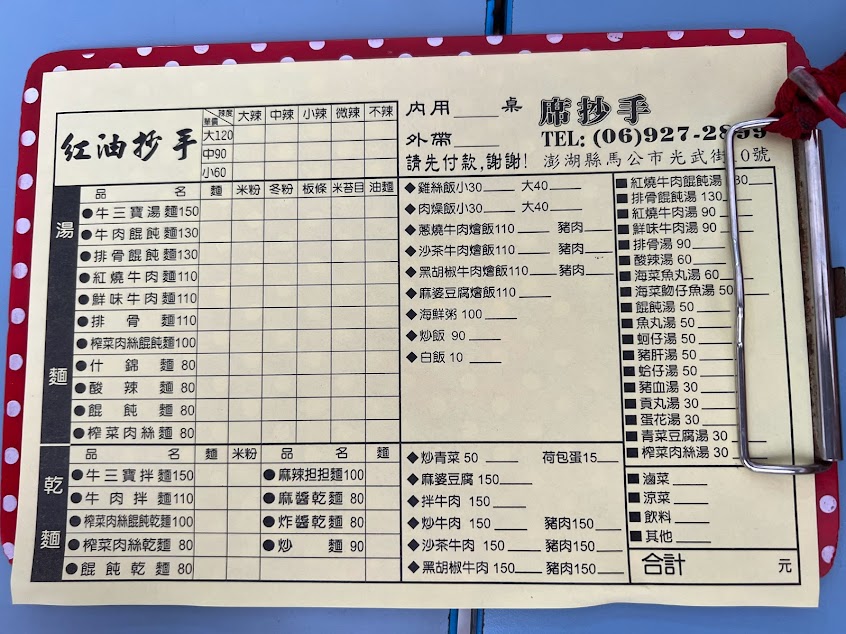 紅油抄手
辣度 單價 大辣 中辣 小辣 微辣 不辣
大120
中90
小60
內用 桌
外帶
請先付款,謝謝!
席抄手
TEL: (06)927-2899
澎湖縣馬公市光武街 0號
湯麵
品名 麵 米粉 冬粉 板條 米苔目 油麵
●牛三寶湯麵150
●牛肉餛飩麵130
●排骨餛飩麵130
●紅燒牛肉麵110
●鮮味牛肉麵110
●排骨麵110
●榨菜肉絲餛飩麵100
●什錦麵 80
●酸辣麵 80
●餛飩麵 80
●榨菜肉絲麵 80
乾麵
品名 麵 米粉 品名 麵
●牛三寶拌麵150 ●麻辣担担麵100
●牛肉拌麵110 ●麻醬乾麵 80
●榨菜肉絲餛飩乾麵100 ●炸醬乾麵 80
●榨菜肉絲乾麵 80 ●炒麵 90
●餛飩乾麵 80
◆雞絲飯小30 大40
◆肉燥飯小30 大40
◆蔥燒牛肉燴飯110 豬肉
◆沙茶牛肉燴飯110 豬肉
◆黑胡椒牛肉燴飯110 豬肉
◆麻婆豆腐燴飯110
◆海鮮粥 100
◆炒飯 90
◆白飯 10
◆炒青菜 50 荷包蛋15
◆麻婆豆腐 150
◆拌牛肉 150
◆炒牛肉 150 豬肉150
◆沙茶牛肉 150 豬肉150
◆黑胡椒牛肉 150 豬肉150
■紅燒牛肉餛飩湯 30
■排骨餛飩湯 130
■紅燒牛肉湯 90
■鮮味牛肉湯 90
■排骨湯 90
■酸辣湯 60
■海菜魚丸湯 60
■海菜魩仔魚湯 50
■餛飩湯 50
■魚丸湯 50
■蚵仔湯 50
■豬肝湯 50
■蛤仔湯 50
■豬血湯 30
■貢丸湯 30
■蛋花湯 30
■青菜豆腐湯 30
■榨菜肉絲湯 30
■滷菜
■涼菜
■飲料
■其他
合計 元